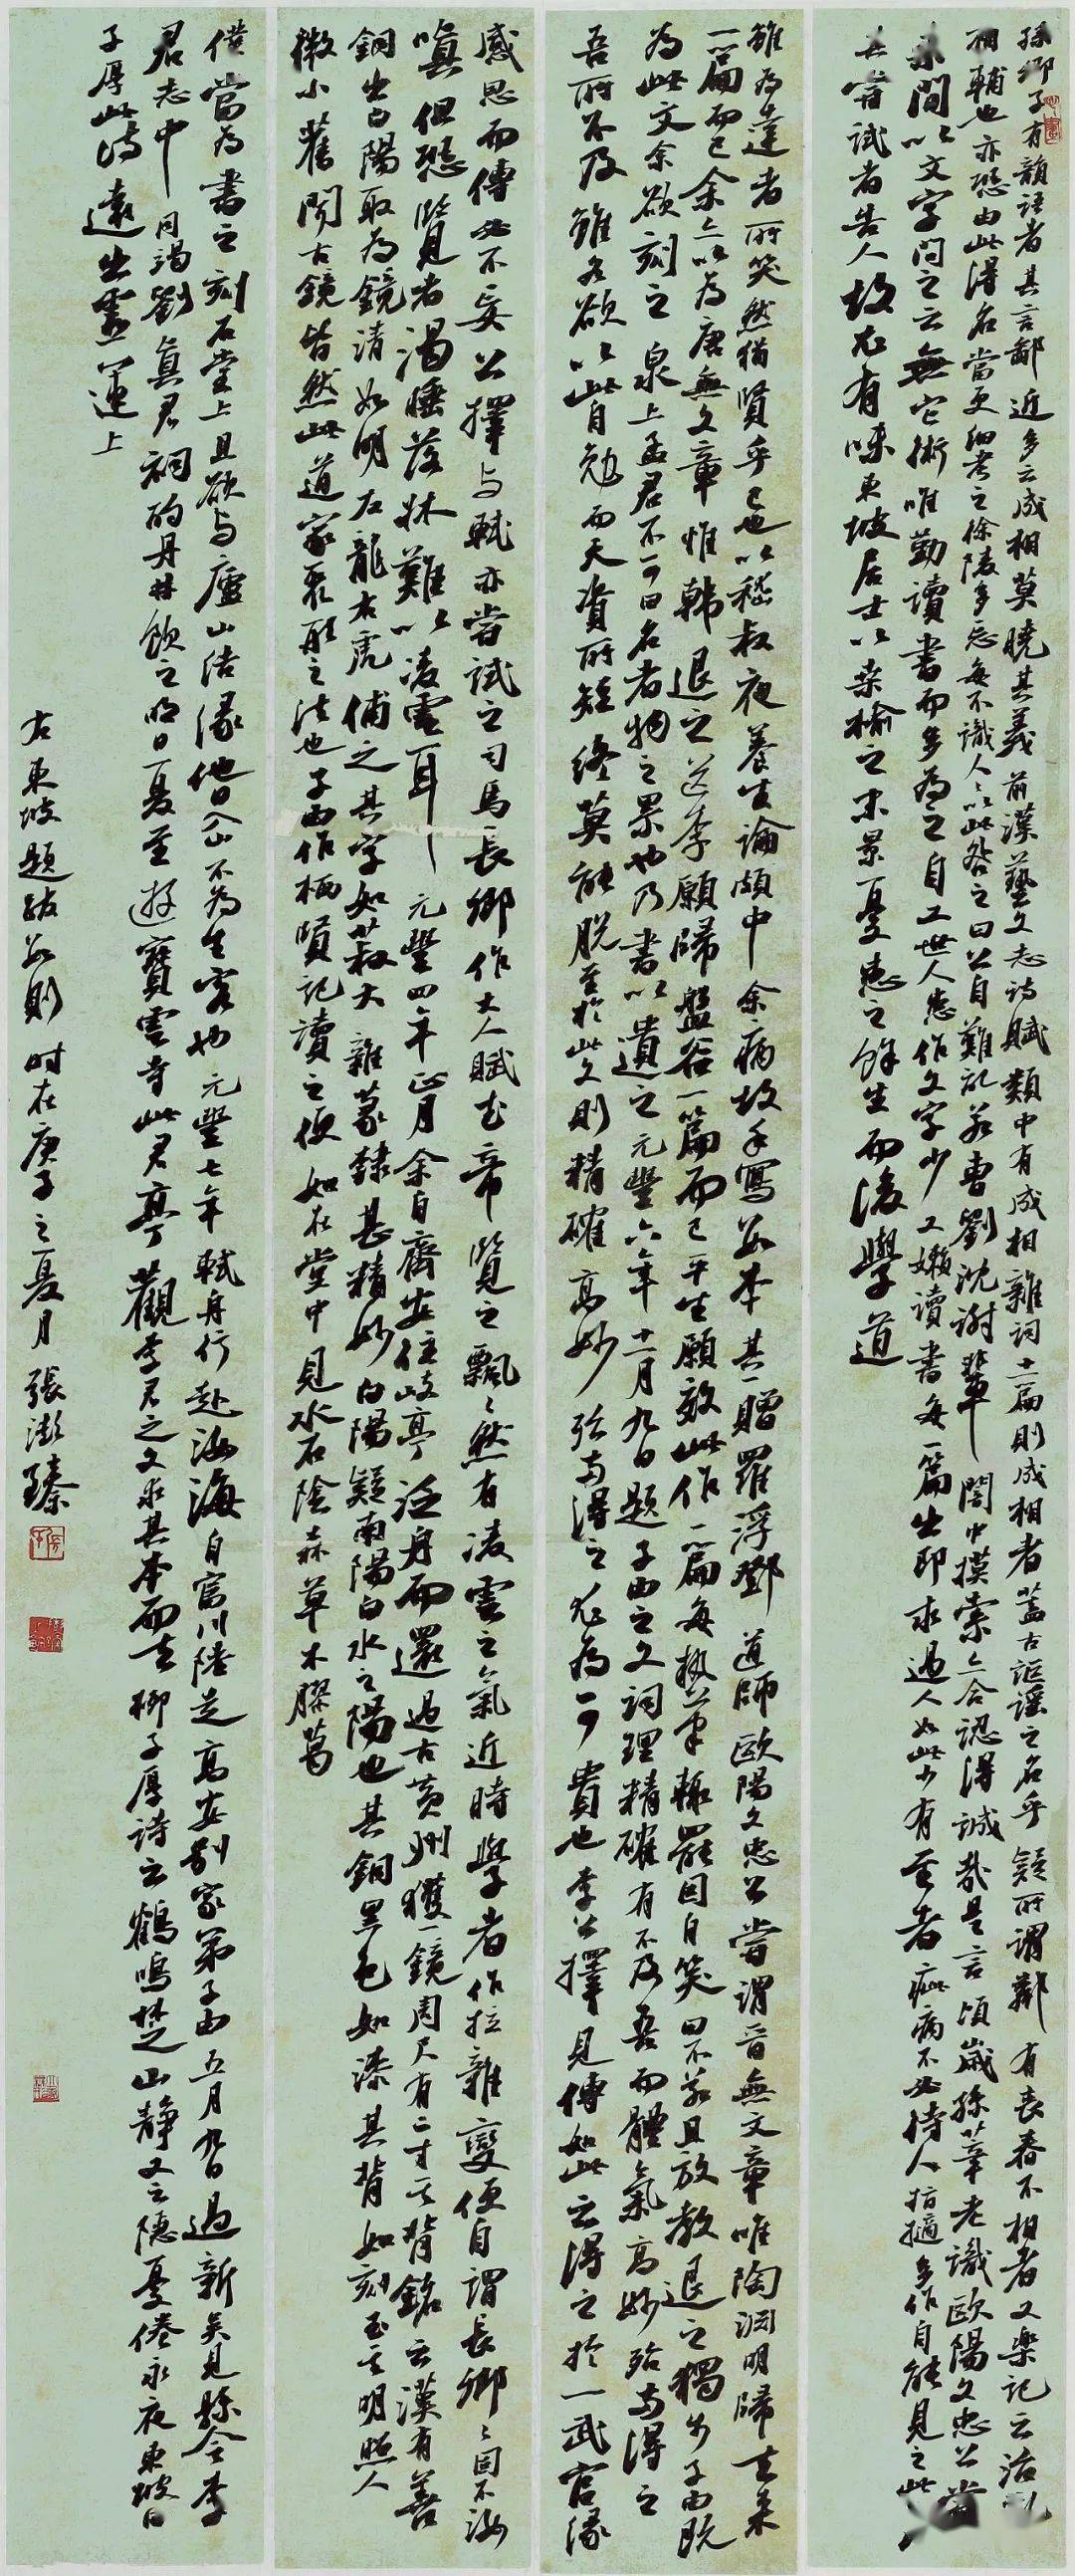 孫卿子有韻語者其言鄙近多云成相莫曉其義前漢藝文志詩賦類中有成相雜詞十一篇則成相者蓋古謳謠之名乎疑所謂鄰有喪舂不相者又樂記云治亂
相輔也亦恐由此得名當更細考之徐陵多忘每不識人人以此咎之曰公自難記若曹劉沈謝輩闇中摸索亦合認得誠哉是言頃歲孫莘老識歐陽文忠公嘗
乘間以文字問之云無它術唯勤讀書而多為之自工世人患作文字少又嬾讀書每一篇出即求過人如此少有至者疵病不必待人指擿多作自能見之此公
以其嘗試者告人故尤有味東坡居士以桑榆之末景憂患之餘生而後學道
雖為達者所笑然猶賢乎已也以嵇叔夜養生論頗中余病故手寫數本其一贈羅浮鄧道師歐陽文忠公嘗謂晉無文章唯陶淵明歸去來
一篇而已余亦以為唐無文章惟韓退之送李愿歸盤谷一篇而已平生願效此作一篇每執筆輒罷因自笑曰不若且放教退之獨步子由既
為此文余欲刻之泉上孟君不可曰名者物之累也乃書以遺之元豐六年十一月九日題子由之文詞理精確有不及吾而體氣高妙殆兩得之
吾所不及雖各欲以此自勉而天資所短終莫能脫至於此文則精確高妙殆兩得之尤為可貴也李公擇見傳如此云得之於一武官緣
感思而傳必不妄公擇與軾亦嘗試之司馬長卿作大人賦武帝覽之飄飄然有凌雲之氣近時學者作拉雜變便自謂長卿長卿固不汝
嗔但恐覽者渴睡落牀難以凌雲耳元豐四年正月余自齊安往岐亭泛舟而還過古黃州獲一鏡周尺有二寸其背銘云漢有善
銅出白陽取為鏡清如明左龍右虎俌之其字如菽大雜篆隸甚精妙白陽疑南陽白水之陽也其銅黑色如漆其背如刻玉其明照人
微小舊聞古鏡皆然此道家聚形之法也子由作栖賢記讀之便如在堂中見水石陰森草木膠葛
僕當為書之刻石堂上且欲與廬山結緣他日入山不為生客也元豐七年軾舟行赴汝海自富川陸走高安別家弟子由五月九日過新吳見縣令李
君志中同謁劉真君祠酌丹井飲之明日夏至遊寶雲寺此君亭觀李君之文求其本而去柳子厚詩云鶴鳴楚山靜又云隱憂倦永夜東坡曰
子厚此詩遠出靈運上
右東坡題跋數則時在庚子之夏月張澎臻